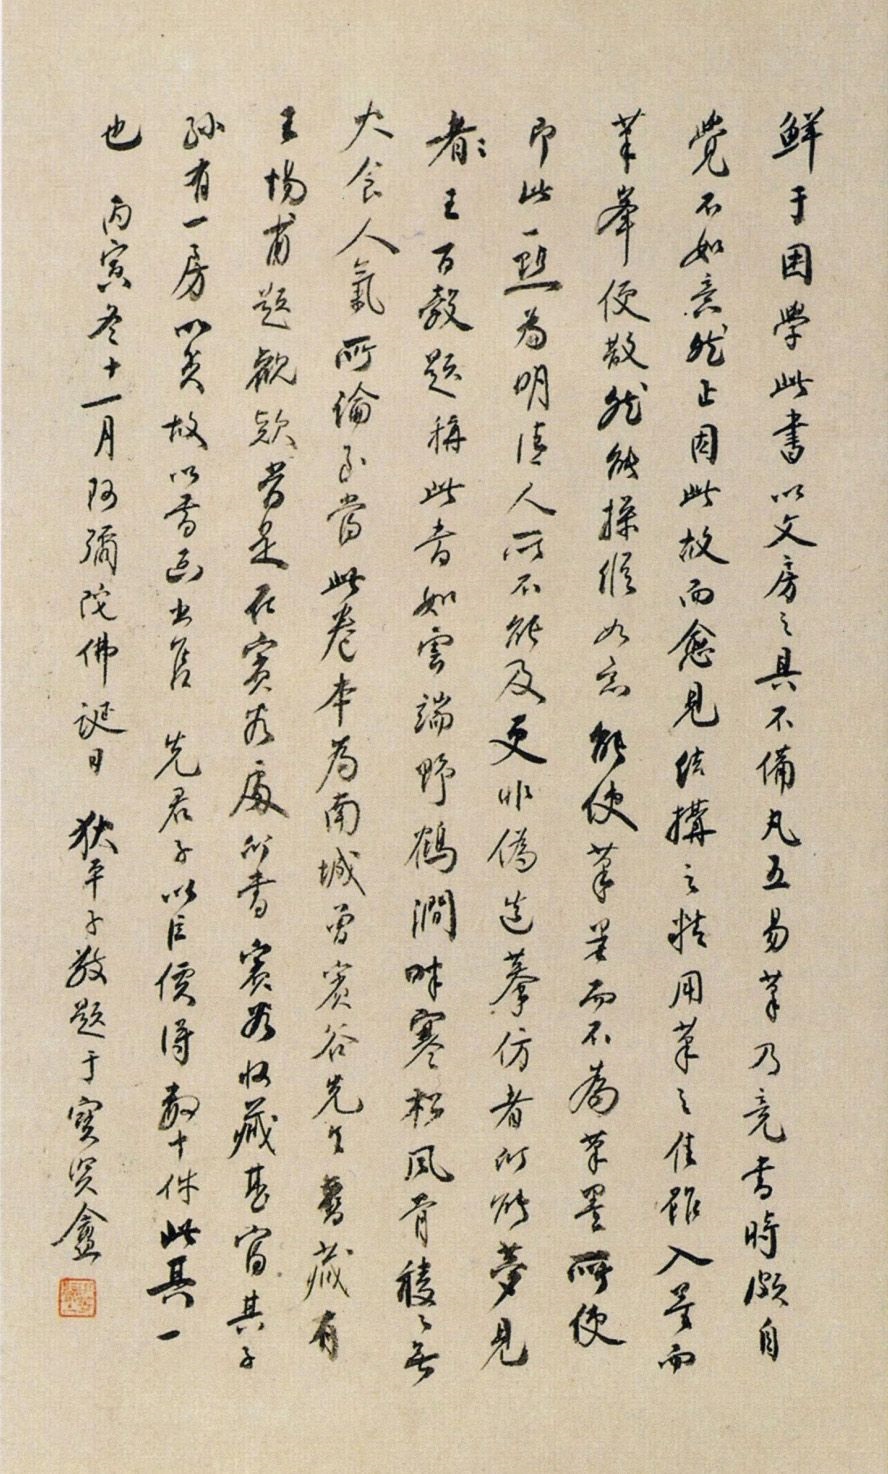 鮮于困學此書以文房之具不備凡五易筆乃竟書時頗自
覺不如意然正因此故而愈見結搆之精用筆之佳雖入墨而
筆峯便散然能操縱如意能使筆墨而不為筆墨所使
即此一點為明清人所不能及更非偽造摹仿者所能夢見
者王百穀題稱此書如雲端野鶴澗畔寒松風骨稜〻無
火食人氣所論至當此卷本為南城曾賓谷先生舊藏有
王惕甫題觀款當是在賓谷處所書賓谷收藏甚富其子
孫有一房以貧故以書畫出售 先君子以巨價得數十件此其一
也 丙寅冬十一月阿彌陀佛誕日 狄平子敬題于寶盦